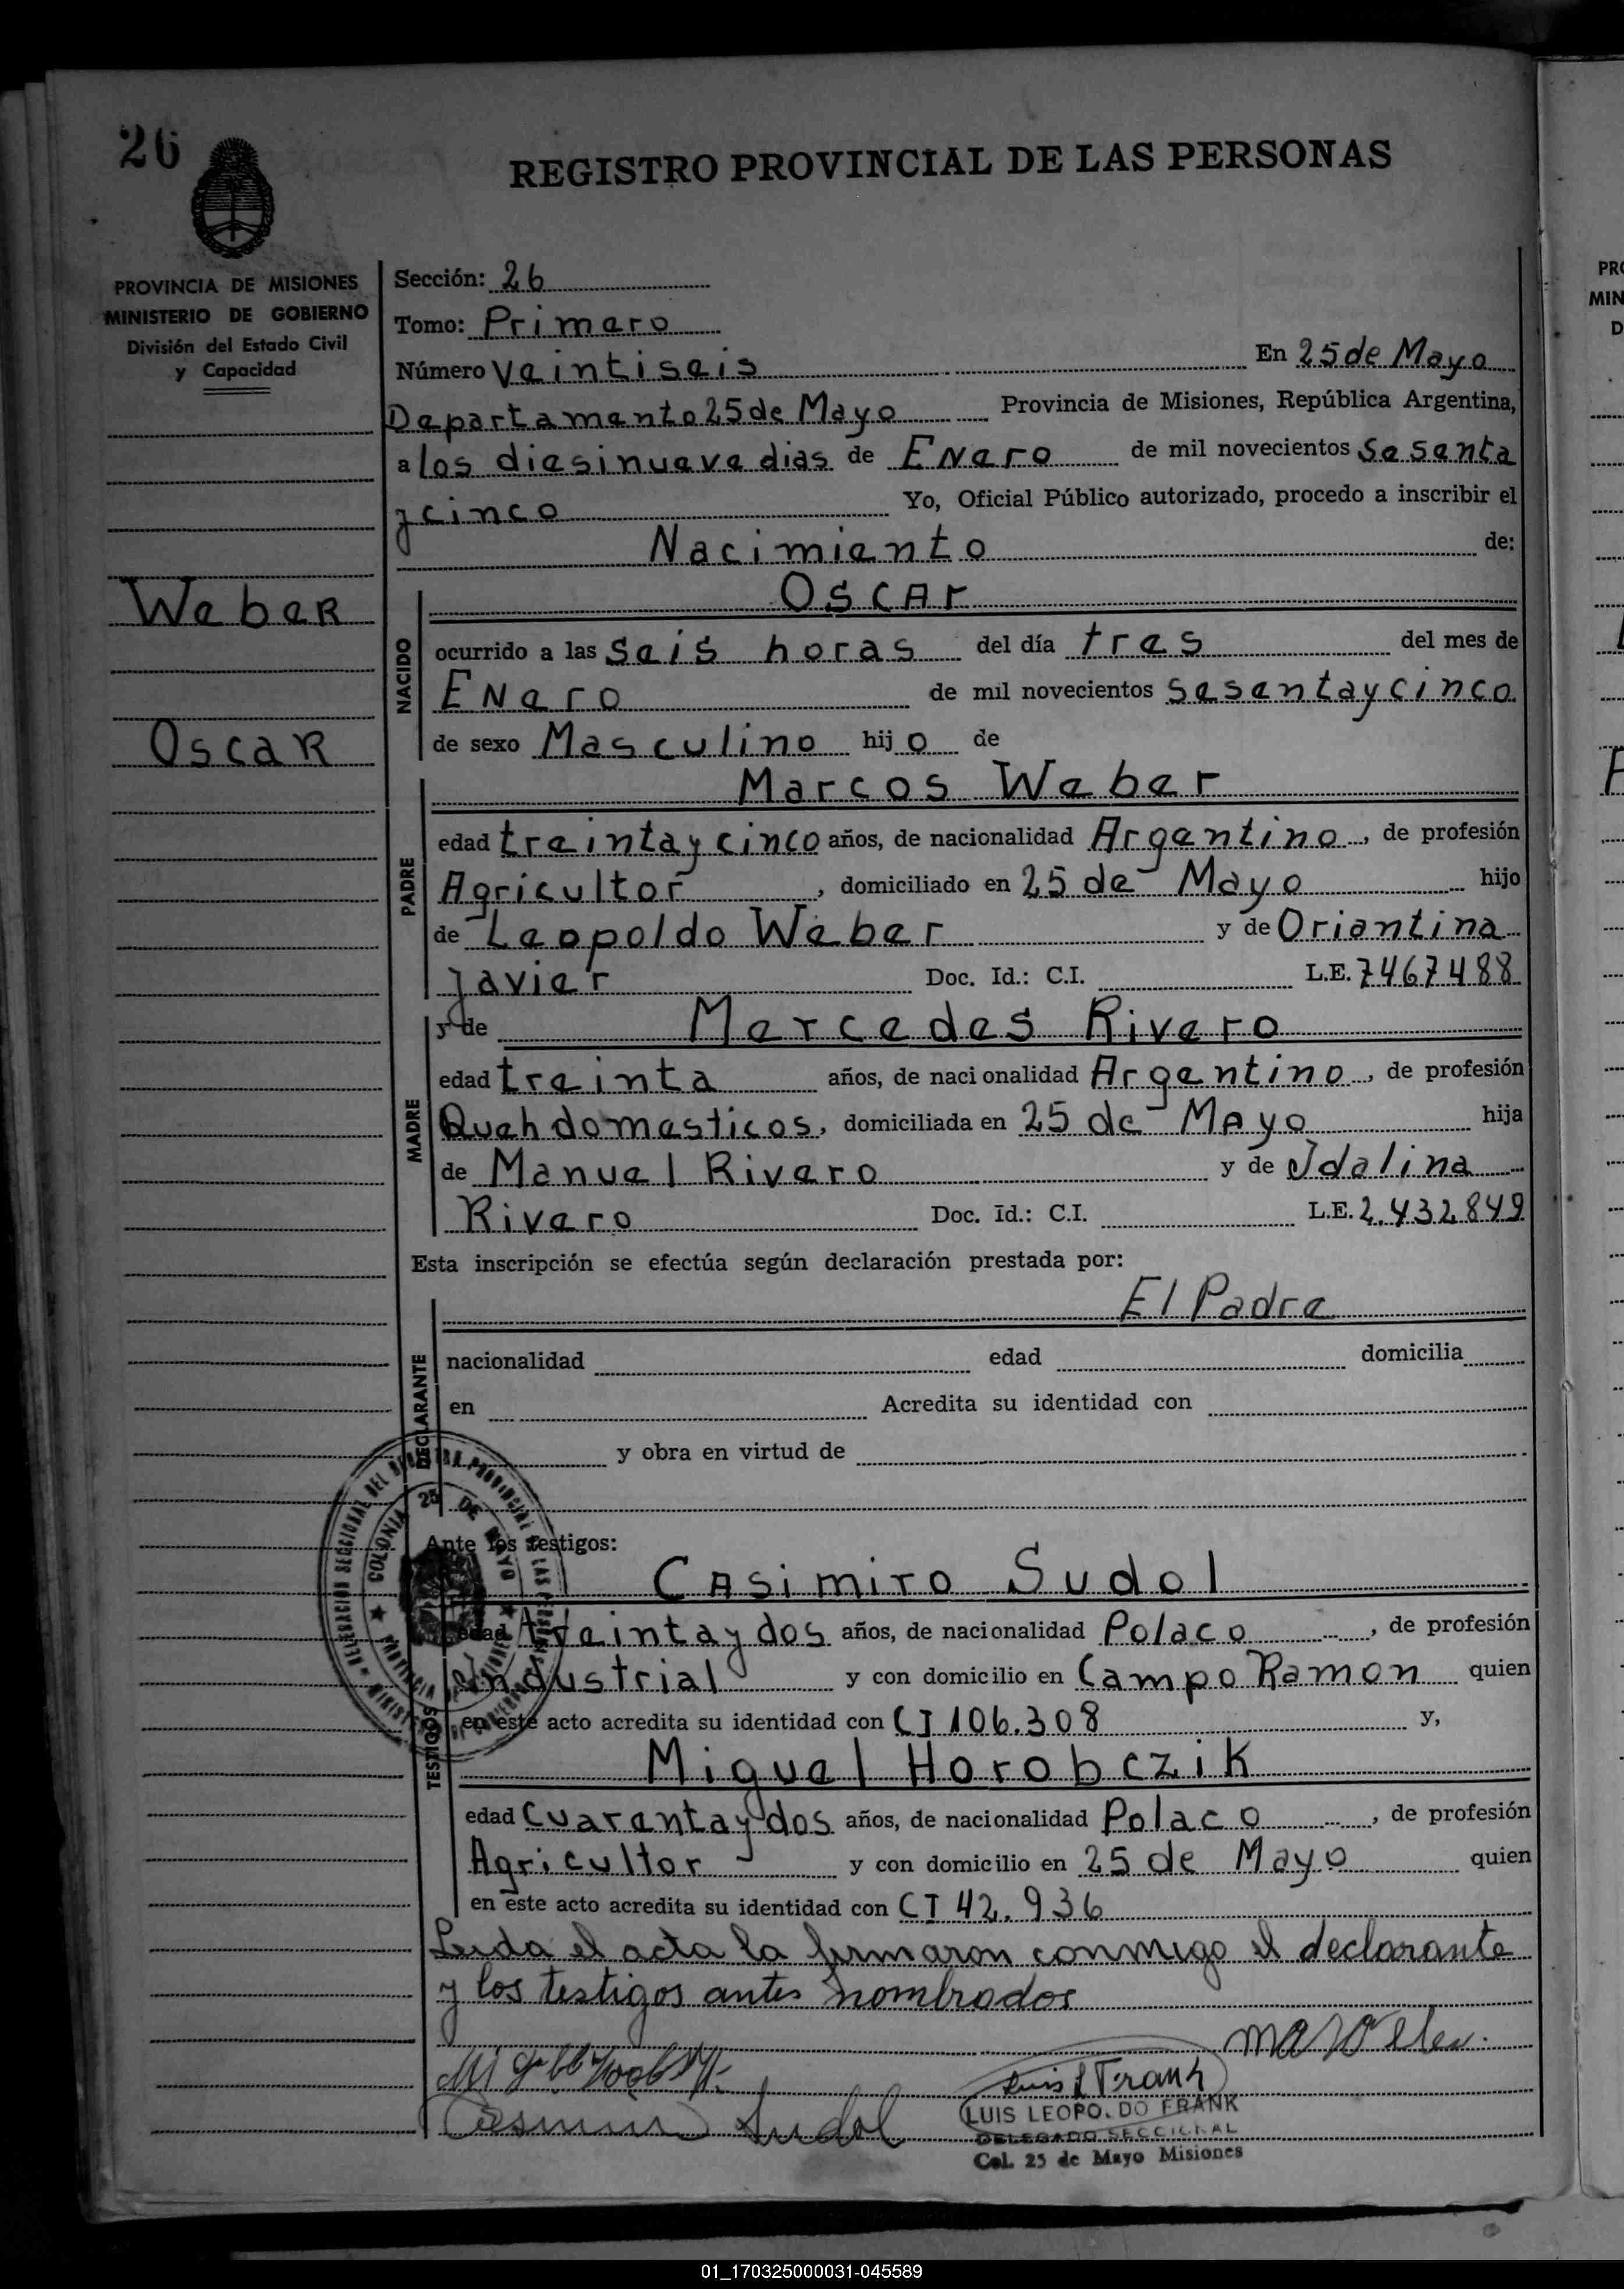 26
REGISTRO PROVINCIAL DE LAS PERSONAS
PROVINCIA DE MISIONES
MINISTERIO DE GOBIERNO
División del Estado Civil
y Capacidad
Weber
Oscar
Sección: 26
Tomo: Primero
Número Veintiseis En 25 de Mayo
Departamento 25 de Mayo Provincia de Misiones, República Argentina,
a los diesinueve dias de Enero de mil novecientos Sesenta
y cinco Yo, Oficial Público autorizado, procedo a inscribir el
Nacimiento de:
Oscar
NACIDO
ocurrido a las seis horas del día tres del mes de
Enero de mil novecientos sesenta y cinco
de sexo Masculino hijo de
Marcos Weber
PADRE
edad treinta y cinco años, de nacionalidad Argentino, de profesión
Agricultor, domiciliado en 25 de Mayo hijo
de Leopoldo Weber y de Oriantina
Javier Doc. Id.: C.I. L.E. 7467488
MADRE
y de Mercedes Rivero
edad treinta años, de nacionalidad Argentino, de profesión
Queh domesticos, domiciliada en 25 de Mayo hija
de Manuel Rivero y de Idalina
Rivero Doc. Id.: C.I. L.E. 2.432.849
Esta inscripción se efectúa según declaración prestada por:
El Padre
DECLARANTE
nacionalidad edad domicilia
en Acredita su identidad con
y obra en virtud de
COLONIA 25 DE MAYO
Ante los testigos:
Casimiro Sudol
TESTIGOS
edad treinta y dos años, de nacionalidad Polaco, de profesión
industrial y con domicilio en Campo Ramon quien
en este acto acredita su identidad con CI 106.308 y,
Miguel Horobczik
edad Cuarenta y dos años, de nacionalidad Polaco, de profesión
Agricultor y con domicilio en 25 de Mayo quien
en este acto acredita su identidad con CI 42.936
Leida el acta la firmaron conmigo el declarante
y los testigos antes nombrados
Luis L Frank
Sudol
LUIS LEOPO.DO FRANK
DELEGADO SECCIONAL
Col. 25 de Mayo Misiones
01_170325000031-045589